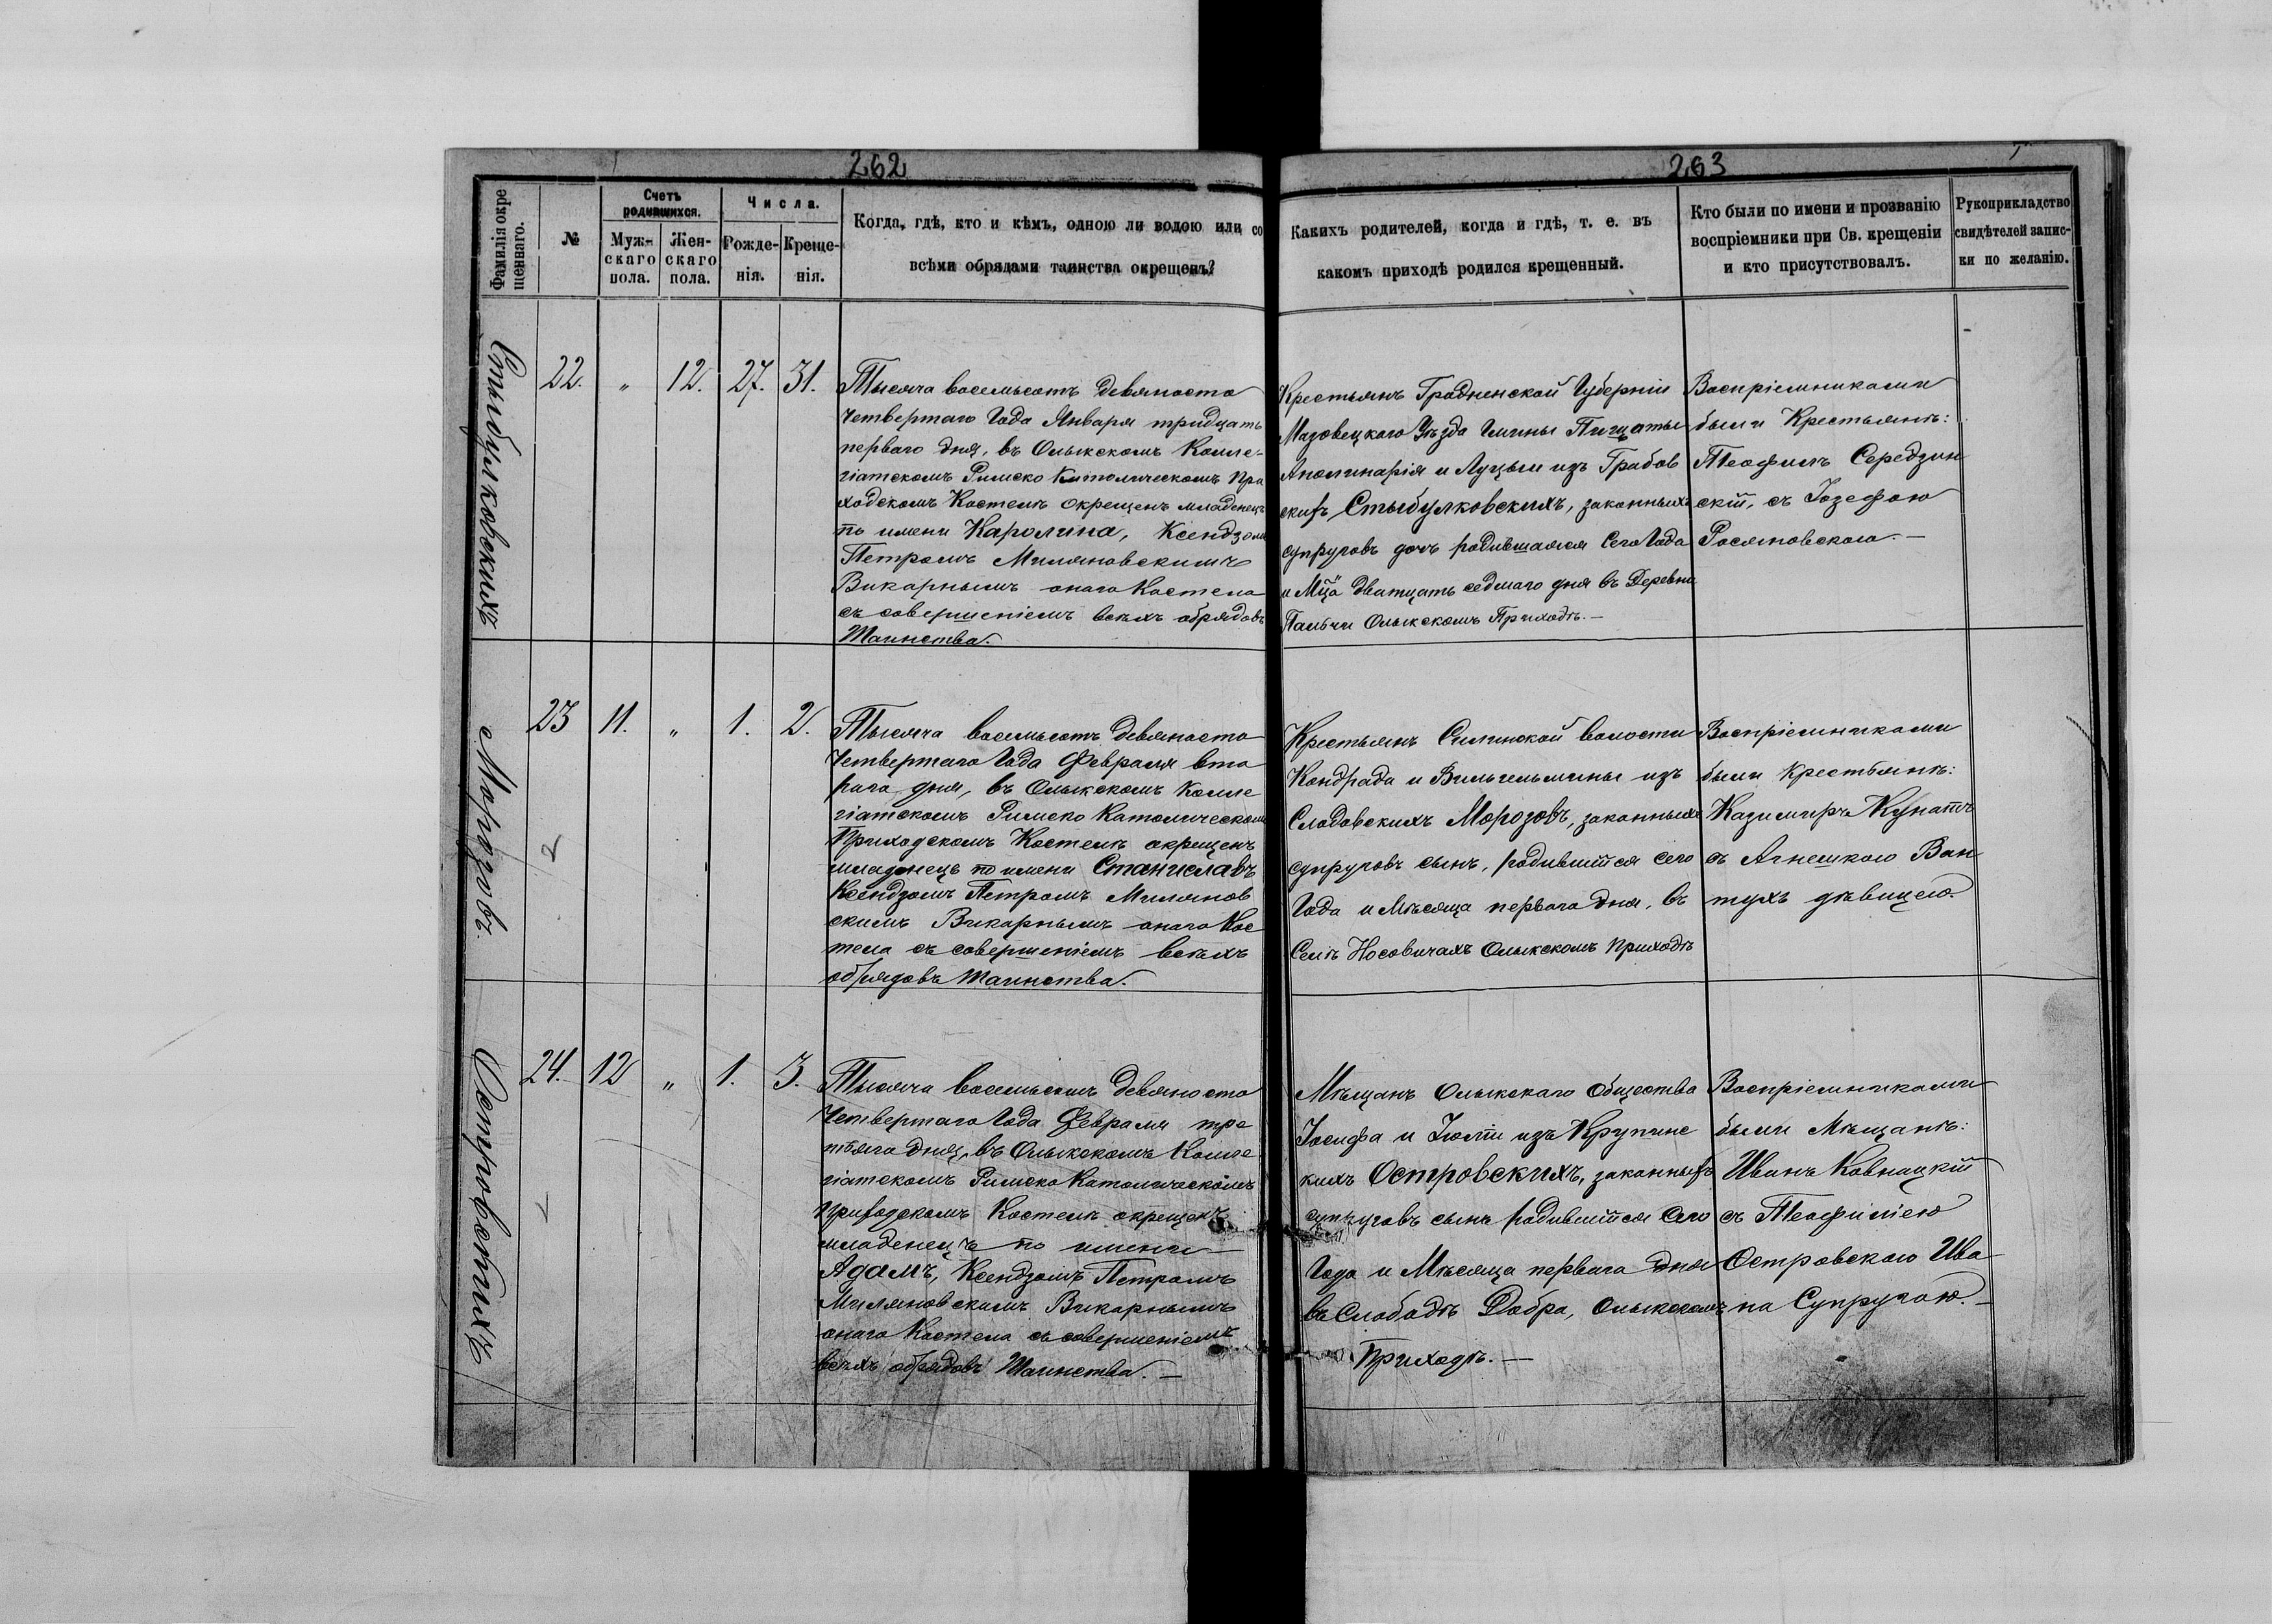 262
Фамилія окре
щеннаго.
№
Счетъ
родившихся.
Муж-
скаго
пола.
Жен-
скаго
пола.
Числа.
Рожде-
нія.
Креще-
нія.
Когда, гдѣ, кто и кѣмъ, одною ли водою или со
всѣми обрядами таинства окрещенъ?
263
Какихъ родителей, когда и гдѣ, т. е. въ
какомъ приходѣ родился крещенный.
Кто были по имени и прозванію
воспріемники при Св. крещеніи
и кто присутствовалъ.
Рукоприкладство
свидѣтелей запис-
ки по желанію.
Стыбулковскихъ
22. " 12. 27. 31.
Тысяча восемьсотъ девяносто
Четвертаго Года Января тридцать
перваго дня, въ Олыкскомъ Колле-
гіатскомъ Римско Католическомъ При
ходскомъ Костелѣ окрещенъ младенецъ
по имени Каролина, Ксендзомъ
Петромъ Миляновскимъ
Викарнымъ онаго Костела
съ совершеніемъ всѣхъ обрядовъ
Таинства.
Крестьянъ Гродненской Губерніи
Мазовецкаго Уѣзда Гмины Пищаты
Аполинарія и Луцыи изъ Грабов
скихъ Стыбулковскихъ, законныхъ
супруговъ дочь родившаяся Сего Года
и Мца дватцать седмаго дня въ Деревни
Пальчи Олыкскомъ Приходѣ.—
Воспріемниками
были Крестьянѣ:
Теофилъ Середзин
скій, съ Іозефою
Росяновскою.—
Морозовъ.
23 11. " 1. 2.
Тысяча восемьсотъ девяносто
Четвертаго Года Февраля вто
рого дня, въ Олыкскомъ Колле
гіатскомъ Римско Католическомъ
Приходскомъ Костелѣ окрещенъ
младенецъ по имени Станиславъ
Ксендзомъ Петромъ Милянов
скимъ Викарнымъ онаго Кос
тела съ совершеніемъ всѣхъ
обрядовъ Таинства.
Крестьянъ Силинской волости
Кондрада и Вильгельмины изъ
Слодовскихъ Морозовъ, законныхъ
супруговъ сынъ, родившійся сего
Года и Мѣсяца перваго дня, въ
Селѣ Носовичахъ Олыкскомъ Приходѣ
Воспріемниками
были Крестьянѣ:
Казимиръ Кунатъ
съ Агнешкою Ван
тухъ дѣвицею.
Островскихъ
24. 12 " 1. 3.
Тысяча восемьсотъ девяносто
Четвертаго Года Февраля тре
тьяго дня, въ Олыкскомъ Колле
гіатскомъ Римско Католическомъ
Приходскомъ Костелѣ окрещенъ
младенецъ по имени
Адамъ, Ксендзомъ Петромъ
Миляновскимъ Викарнымъ
онаго Костела съ совершеніемъ
всѣхъ обрядовъ Таинства.—
Мѣщанъ Олыкскаго Общества
Іосифа и Юліи изъ Крупинс
кихъ Островскихъ, законныхъ
супруговъ сынъ родившійся Сего
Года и Мѣсяца перваго дня
въ Слободѣ Добра, Олыкскомъ
Приходѣ.—
Воспріемниками
были Мѣщанѣ:
Иванъ Ковнацкій
съ Теофиліею
Островскою Ива
на Супругою.—